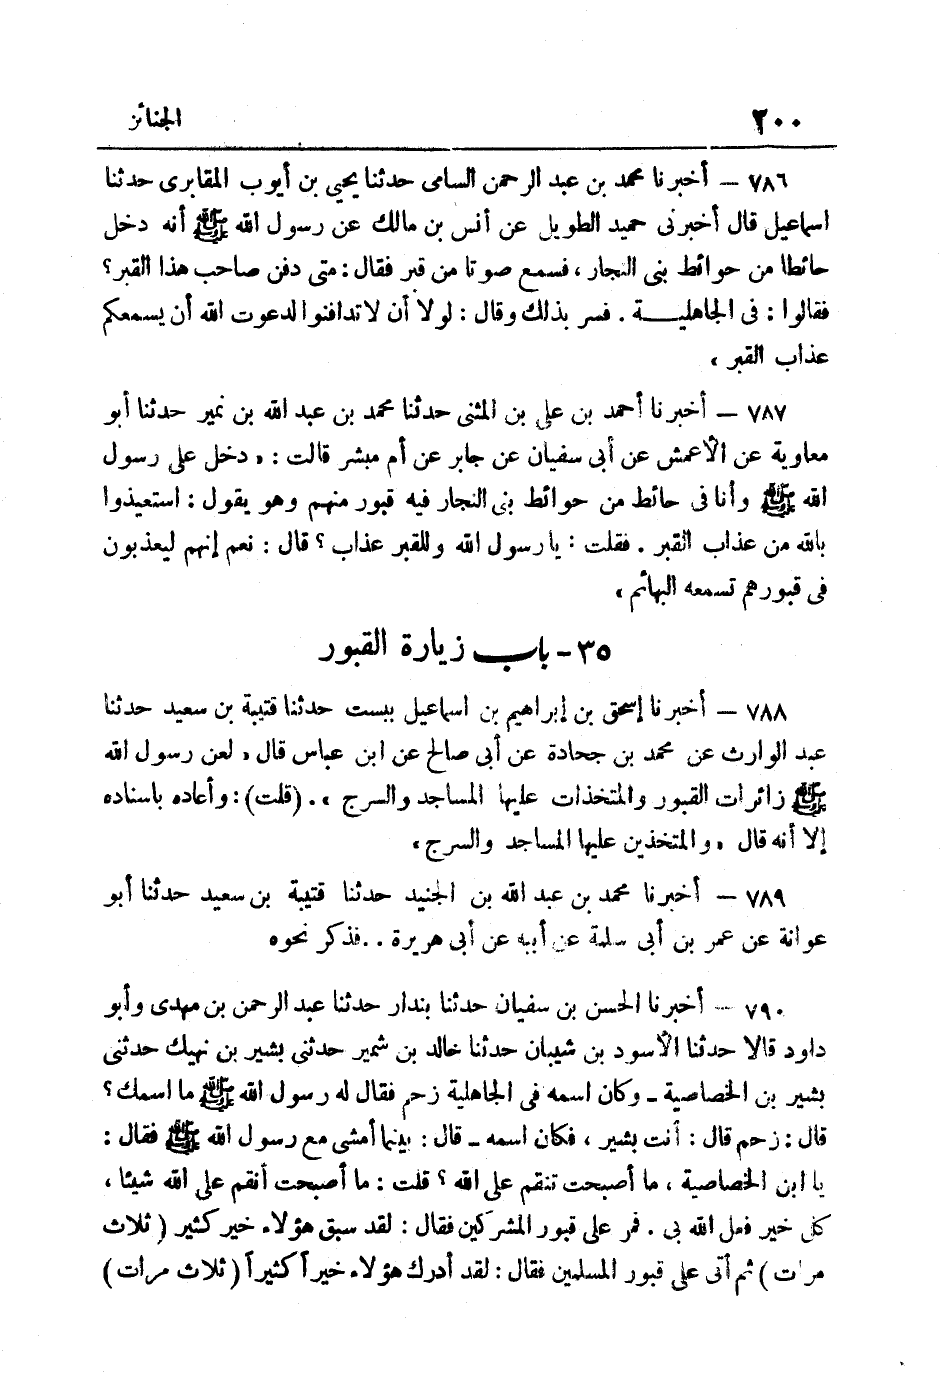 ٢٠٠ الجنائز
٧٨٦ – أخبرنا محمد بن عبد الرحمن السامى حدثنا يحيى بن أيوب المقابرى حدثنا
اسماعيل قال أخبرنى حميد الطويل عن أنس بن مالك عن رسول الله ﷺ أنه دخل
حائطا من حوائط بنى النجار ، فسمع صوتا من قبر فقال : متى دفن صاحب هذا القبر؟
فقالوا : فى الجاهليـــة . فسر بذلك وقال : لولا أن لاتدافنوا لدعوت الله أن يسمعكم
عذاب القبر ،
٧٨٧ – أخبرنا أحمد بن على بن المثنى حدثنا محمد بن عبد الله بن نمير حدثنا أبو
معاوية عن الأعمش عن أبى سفيان عن جابر عن أم مبشر قالت : « دخل على رسول
الله ﷺ وأنا فى حائط من حوائط بنى النجار فيه قبور منهم وهو يقول : استعيذوا
بالله من عذاب القبر . فقلت : يا رسول الله وللقبر عذاب ؟ قال : نعم إنهم ليعذبون
فى قبورهم تسمعه البهائم ،
٣٥ - باب زيارة القبور
٧٨٨ – أخبرنا إسحق بن إبراهيم بن اسماعيل ببست حدثنا قتيبة بن سعيد حدثنا
عبد الوارث عن محمد بن جحادة عن أبى صالح عن ابن عباس قال « لعن رسول الله
ﷺ زائرات القبور والمتخذات عليها المساجد والسرج » . (قلت) : وأعاده باسناده
إلا أنه قال « والمتخذين عليها المساجد والسرج ،
٧٨٩ – أخبرنا محمد بن عبد الله بن الجنيد حدثنا قتيبة بن سعيد حدثنا أبو
عوانة عن عمر بن أبى سلمة عن أبيه عن أبى هريرة . . فذكر نحوه
٧٩٠ – أخبرنا الحسن بن سفيان حدثنا بندار حدثنا عبد الرحمن بن مهدى وأبو
داود قالا حدثنا الأسود بن شيبان حدثنا خالد بن شمير حدثنى بشير بن نهيك حدثنى
بشير بن الخصاصية ـ وكان اسمه فى الجاهلية زحم فقال له رسول الله ﷺ ما اسمك ؟
قال : زحم قال : أنت بشير ، فكان اسمه ـ قال : بينما أمشى مع رسول الله ﷺ فقال :
يا ابن الخصاصية ، ما أصبحت تنقم على الله ؟ قلت : ما أصبحت أنقم على الله شيئا ،
كل خير فعل الله بى . فمر على قبور المشركين فقال : لقد سبق هؤلاء خير كثير ( ثلاث
مرات ) ثم أتى على قبور المسلمين فقال : لقد أدرك هؤلاء خيراً كثيراً ( ثلاث مرات )